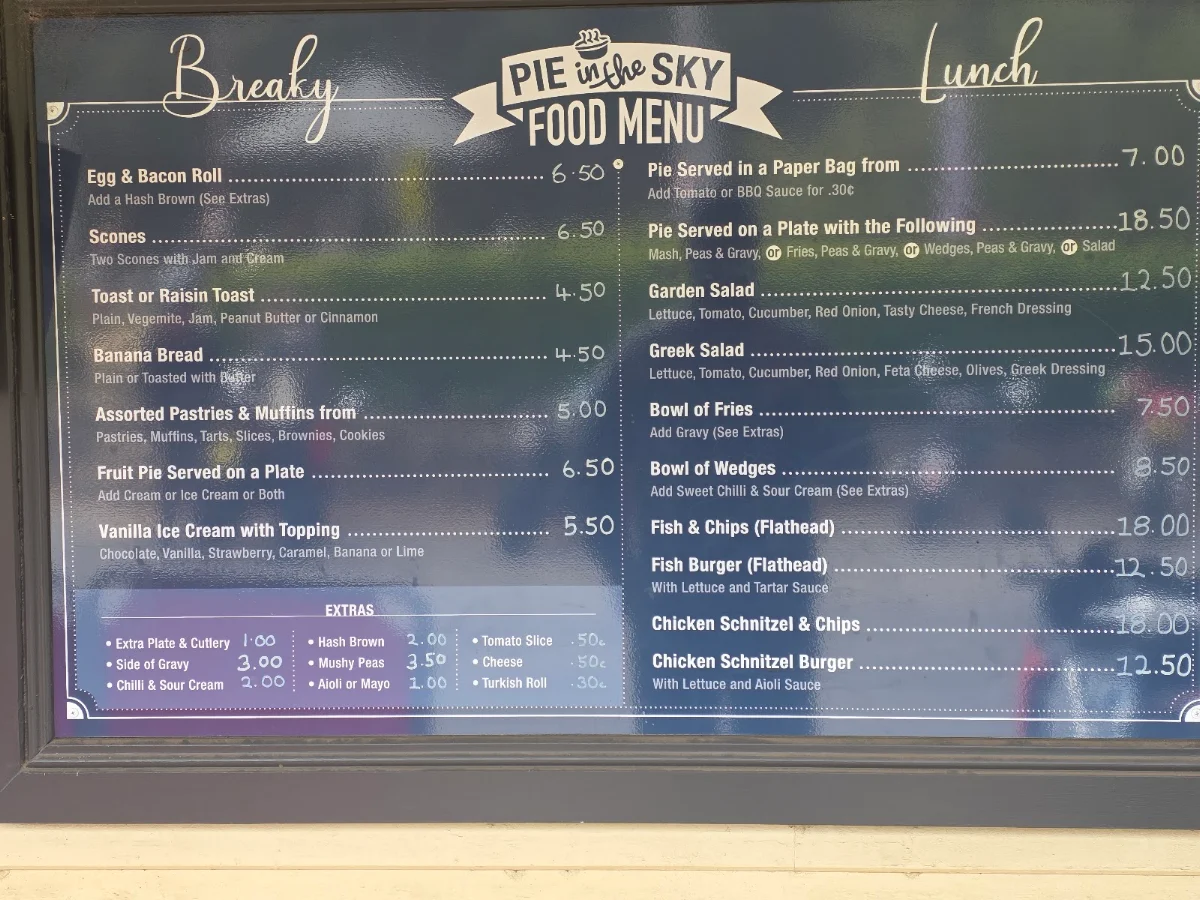 Breaky
PIE in the SKY
FOOD MENU
Lunch
Egg & Bacon Roll ........ 6.50
Add a Hash Brown (See Extras)
Scones ........ 6.50
Two Scones with Jam and Cream
Toast or Raisin Toast ........ 4.50
Plain, Vegemite, Jam, Peanut Butter or Cinnamon
Banana Bread ........ 4.50
Plain or Toasted with Butter
Assorted Pastries & Muffins from ........ 5.00
Pastries, Muffins, Tarts, Slices, Brownies, Cookies
Fruit Pie Served on a Plate ........ 6.50
Add Cream or Ice Cream or Both
Vanilla Ice Cream with Topping ........ 5.50
Chocolate, Vanilla, Strawberry, Caramel, Banana or Lime
EXTRAS
• Extra Plate & Cutlery 1.00
• Side of Gravy 3.00
• Chilli & Sour Cream 2.00
• Hash Brown 2.00
• Mushy Peas 3.50
• Aioli or Mayo 1.00
• Tomato Slice .50c
• Cheese .50c
• Turkish Roll .30c
Pie Served in a Paper Bag from ........ 7.00
Add Tomato or BBQ Sauce for .30¢
Pie Served on a Plate with the Following ........ 18.50
Mash, Peas & Gravy, or Fries, Peas & Gravy, or Wedges, Peas & Gravy, or Salad
Garden Salad ........ 12.50
Lettuce, Tomato, Cucumber, Red Onion, Tasty Cheese, French Dressing
Greek Salad ........ 15.00
Lettuce, Tomato, Cucumber, Red Onion, Feta Cheese, Olives, Greek Dressing
Bowl of Fries ........ 7.50
Add Gravy (See Extras)
Bowl of Wedges ........ 8.50
Add Sweet Chilli & Sour Cream (See Extras)
Fish & Chips (Flathead) ........ 18.00
Fish Burger (Flathead) ........ 12.50
With Lettuce and Tartar Sauce
Chicken Schnitzel & Chips ........ 18.00
Chicken Schnitzel Burger ........ 12.50
With Lettuce and Aioli Sauce